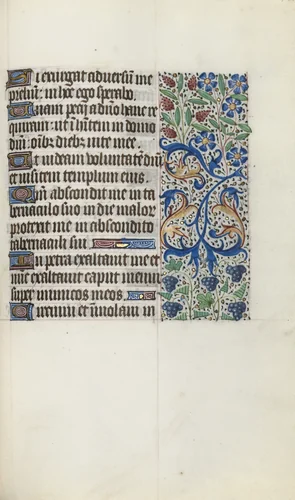 Si exurgat adversum me
prelium: in hoc ego sperabo.
Unam pecii a dno hanc re
quiram: ut inhitem in domo
dni: oibz diebz vite mee.
Ut videam voluntatē dni
et visitem templum eius.
Qm abscondit me in ta
bernaculo suo in die malor
protexit me in abscondito
tabernaculi sui
In petra exaltavit me et
nūc exaltavit caput meum
super inimicos meos.
Circuivi et immolavi in